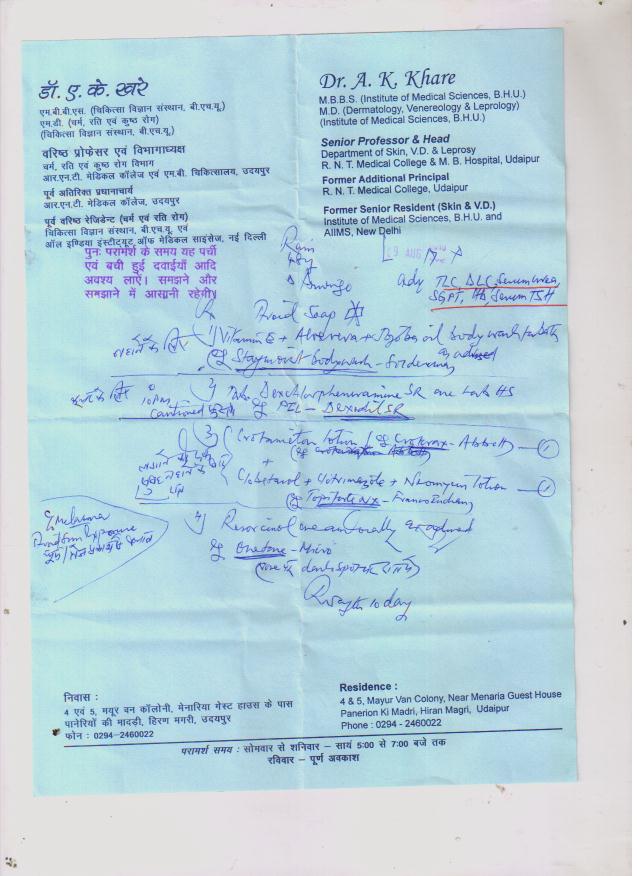 डॉ. ए. के. खरे
एम.बी.बी.एस. (चिकित्सा विज्ञान संस्थान, बी.एच.यू.)
एम.डी. (चर्म, रति एवं कुष्ठ रोग)
(चिकित्सा विज्ञान संस्थान, बी.एच.यू.)
वरिष्ठ प्रोफेसर एवं विभागाध्यक्ष
चर्म, रति एवं कुष्ठ रोग विभाग
आर.एन.टी. मेडिकल कॉलेज एवं एम.बी. चिकित्सालय, उदयपुर
पूर्व अतिरिक्त प्रधानाचार्य
आर.एन.टी. मेडिकल कॉलेज, उदयपुर
पूर्व वरिष्ठ रेजिडेन्ट (चर्म एवं रति रोग)
चिकित्सा विज्ञान संस्थान, बी.एच.यू. एवं
ऑल इण्डिया इंस्टीट्यूट ऑफ मेडिकल साइंसेज, नई दिल्ली
Dr. A. K. Khare
M.B.B.S. (Institute of Medical Sciences, B.H.U.)
M.D. (Dermatology, Venereology & Leprology)
(Institute of Medical Sciences, B.H.U.)
Senior Professor & Head
Department of Skin, V.D. & Leprosy
R. N. T. Medical College & M. B. Hospital, Udaipur
Former Additional Principal
R. N. T. Medical College, Udaipur
Former Senior Resident (Skin & V.D.)
Institute of Medical Sciences, B.H.U. and
AIIMS, New Delhi
पुनः परामर्श के समय यह पर्ची
एवं बची हुई दवाईयाँ आदि
अवश्य लाएँ। समझने और
समझाने में आसानी रहेगी।
29 AUG
Adv TLC, DLC, Serum Urea,
SGPT, Hb, Serum TSH
Avoid Soap
1) Vitamin E + Aloevera + Jojoba oil body wash for bath
as advised
eg Staymoist bodywash
2) Tab. Dexchlorpheniramine SR one tab HS
10 PM
eg PIL - Dexidil SR
3) Crotamiton lotion (eg Crotorax - Abbott) - 1
+
Clobetasol + Clotrimazole + Neomycin lotion - 1
(eg Topitate NX - Franco Indian)
4) Resorcinol as advised
eg - Micro
dark spot
10 day
निवास :
4 एवं 5, मयूर वन कॉलोनी, मेनारिया गेस्ट हाउस के पास
पानेरियों की मादड़ी, हिरण मगरी, उदयपुर
फोन : 0294-2460022
Residence :
4 & 5, Mayur Van Colony, Near Menaria Guest House
Panerion Ki Madri, Hiran Magri, Udaipur
Phone : 0294 - 2460022
परामर्श समय : सोमवार से शनिवार – सायं 5:00 से 7:00 बजे तक
रविवार – पूर्ण अवकाश